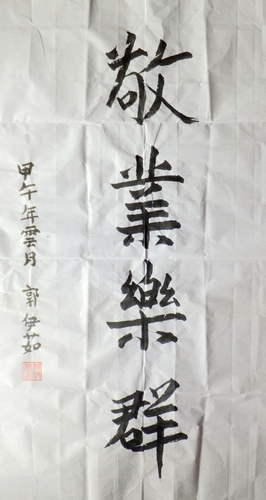 敬業樂群
甲午年雲月 郭伊茹